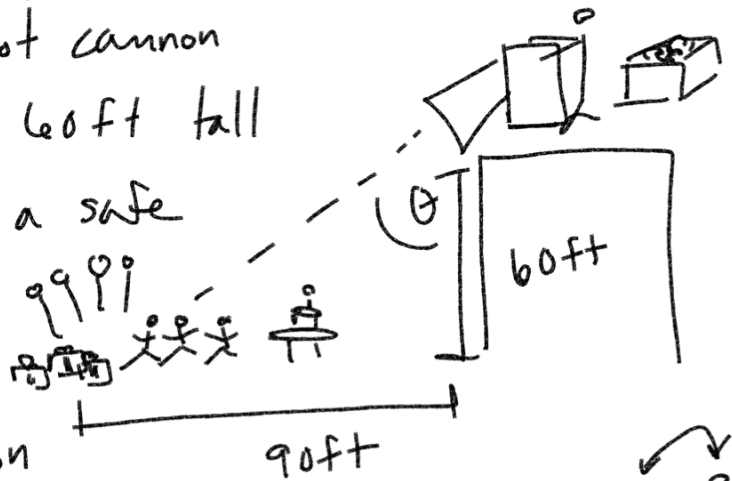 ot cannon
60ft tall
a safe
θ
60ft
on
90ft